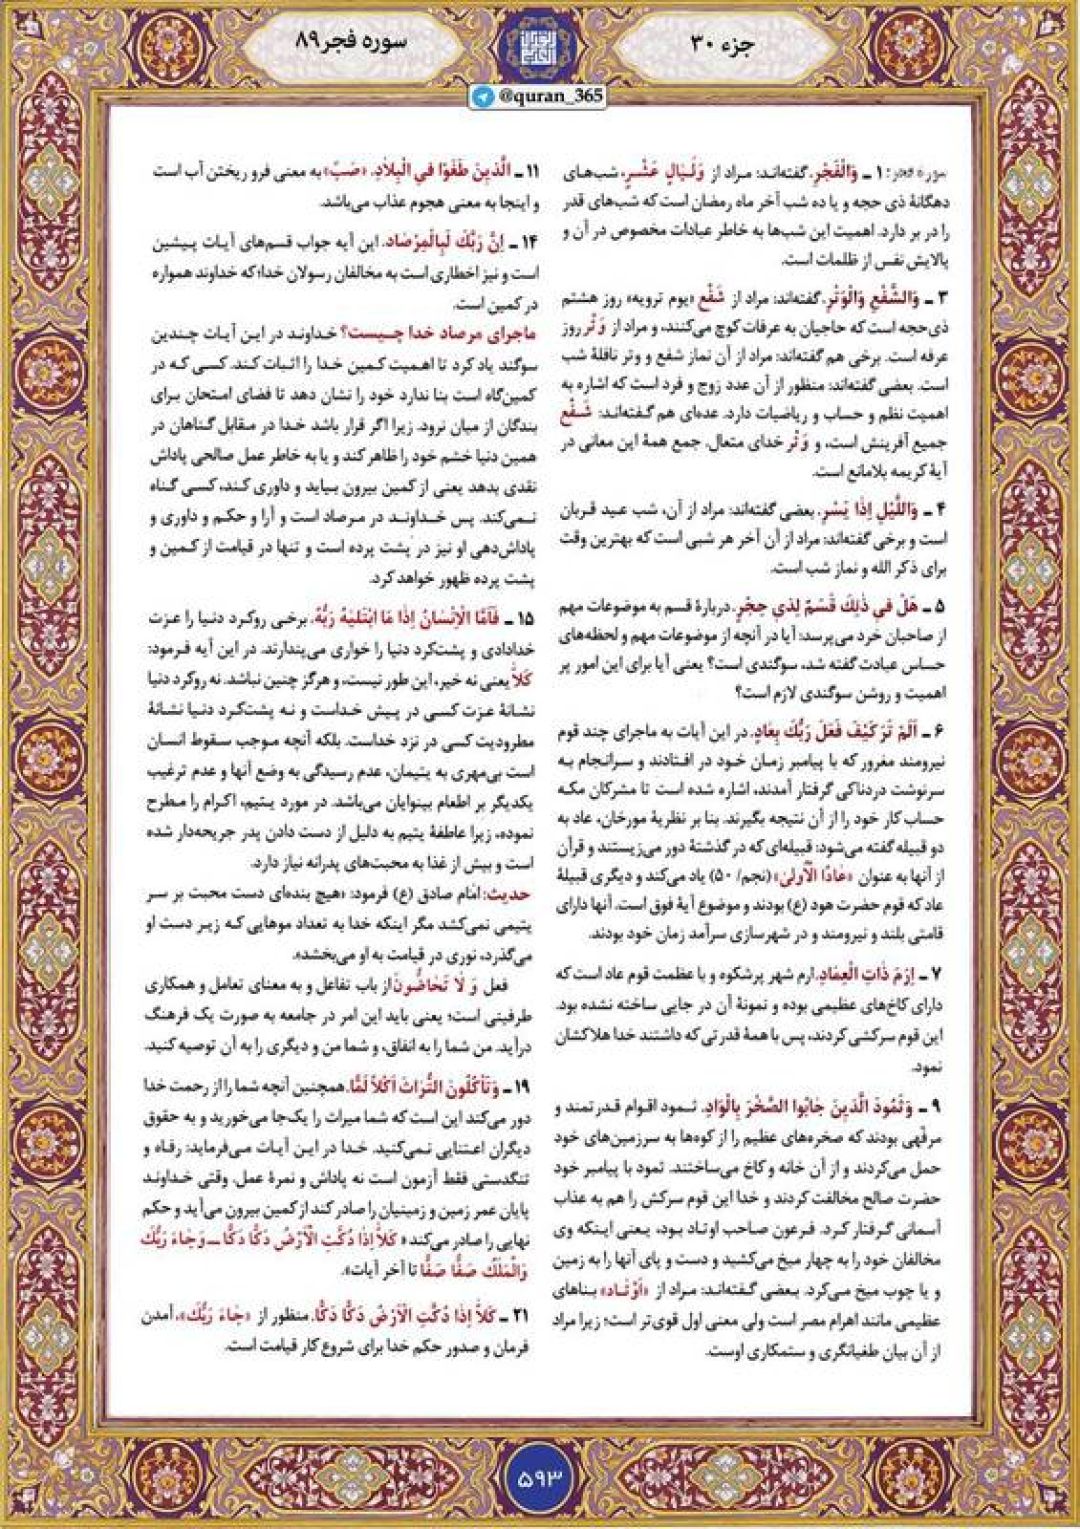 جزء ۳۰
سوره فجر ۸۹
@quran_365
سورهٔ فجر: ۱ ـ وَالْفَجْرِ. گفته‌اند: مراد از وَلَیٰالٍ عَشْرٍ، شب‌های
دهگانهٔ ذی حجه و یا ده شب آخر ماه رمضان است که شب‌های قدر
را در بر دارد. اهمیت این شب‌ها به خاطر عبادات مخصوص در آن و
پالایش نفس از ظلمات است.
۳ ـ وَالشَّفْعِ وَالْوَتْرِ. گفته‌اند: مراد از شَفْعِ «یوم ترویه» روز هشتم
ذی‌حجه است که حاجیان به عرفات کوچ می‌کنند، و مراد از وَتْرِ روز
عرفه است. برخی هم گفته‌اند: مراد از آن نماز شفع و وتر نافلهٔ شب
است. بعضی گفته‌اند: منظور از آن عدد زوج و فرد است که اشاره به
اهمیت نظم و حساب و ریاضیات دارد. عده‌ای هم گفته‌اند: شَفْعِ
جمیع آفرینش است، و وَتْرِ خدای متعال. جمع همهٔ این معانی در
آیهٔ کریمه بلامانع است.
۴ ـ وَاللَّیْلِ إِذٰا یَسْرِ. بعضی گفته‌اند: مراد از آن، شب عید قربان
است و برخی گفته‌اند: مراد از آن آخر هر شبی است که بهترین وقت
برای ذکر الله و نماز شب است.
۵ ـ هَلْ فِي ذٰلِكَ قَسَمٌ لِذِي حِجْرٍ. دربارهٔ قسم به موضوعات مهم
از صاحبان خرد می‌پرسد: آیا در آنچه از موضوعات مهم و لحظه‌های
حساس عبادت گفته شد، سوگندی است؟ یعنی آیا برای این امور پر
اهمیت و روشن سوگندی لازم است؟
۶ ـ أَلَمْ تَرَ کَیْفَ فَعَلَ رَبُّكَ بِعٰادٍ. در این آیات به ماجرای چند قوم
نیرومند مغرور که با پیامبر زمان خود در افتادند و سرانجام به
سرنوشت دردناکی گرفتار آمدند، اشاره شده است تا مشرکان مکه
حساب کار خود را از آن نتیجه بگیرند. بنا بر نظریهٔ مورخان، عاد به
دو قبیله گفته می‌شود: قبیله‌ای که در گذشتهٔ دور می‌زیستند و قرآن
از آنها به عنوان «عٰادًا الْأُولیٰ» (نجم/ ۵۰) یاد می‌کند و دیگری قبیلهٔ
عاد که قوم حضرت هود (ع) بودند و موضوع آیهٔ فوق است. آنها دارای
قامتی بلند و نیرومند و در شهرسازی سرآمد زمان خود بودند.
۷ ـ إِرَمَ ذٰاتِ الْعِمٰادِ. ارم شهر پرشکوه و با عظمت قوم عاد است که
دارای کاخ‌های عظیمی بوده و نمونهٔ آن در جایی ساخته نشده بود.
این قوم سرکشی کردند، پس با همهٔ قدرتی که داشتند خدا هلاکشان
نمود.
۹ ـ وَثَمُودَ الَّذِینَ جٰابُوا الصَّخْرَ بِالْوٰادِ. ثمود اقوام قدرتمند و
مرفّهی بودند که صخره‌های عظیم را از کوه‌ها به سرزمین‌های خود
حمل می‌کردند و از آن خانه و کاخ می‌ساختند. ثمود با پیامبر خود
حضرت صالح مخالفت کردند و خدا این قوم سرکش را هم به عذاب
آسمانی گرفتار کرد. فرعون صاحب اوتاد بود، یعنی اینکه وی
مخالفان خود را به چهار میخ می‌کشید و دست و پای آنها را به زمین
و یا چوب میخ می‌کرد. بعضی گفته‌اند: مراد از «أَوْتٰاد» بناهای
عظیمی مانند اهرام مصر است ولی معنی اول قوی‌تر است؛ زیرا مراد
از آن بیان طغیانگری و ستمکاری اوست.
۱۱ ـ الَّذِینَ طَغَوْا فِي الْبِلاٰدِ. «صَبَّ» به معنی فرو ریختن آب است
و اینجا به معنی هجوم عذاب می‌باشد.
۱۴ ـ إِنَّ رَبَّكَ لَبِالْمِرْصٰادِ. این آیه جواب قسم‌های آیات پیشین
است و نیز اخطاری است به مخالفان رسولان خدا؛ که خداوند همواره
در کمین است.
ماجرای مرصاد خدا چیست؟ خداوند در این آیات چندین
سوگند یاد کرد تا اهمیت کمین خدا را اثبات کند. کسی که در
کمین‌گاه است بنا ندارد خود را نشان دهد تا فضای امتحان برای
بندگان از میان نرود. زیرا اگر قرار باشد خدا در مقابل گناهان در
همین دنیا خشم خود را ظاهر کند و یا به خاطر عمل صالحی پاداش
نقدی بدهد یعنی از کمین بیرون بیاید و داوری کند، کسی گناه
نمی‌کند. پس خداوند در مرصاد است و آرا و حکم و داوری و
پاداش‌دهی او نیز در پشت پرده است و تنها در قیامت از کمین و
پشت پرده ظهور خواهد کرد.
۱۵ ـ فَأَمَّا الْإِنْسٰانُ إِذٰا مَا ابْتَلیٰهُ رَبُّهُ. برخی روکرد دنیا را عزت
خدادادی و پشت‌کرد دنیا را خواری می‌پندارند. در این آیه فرمود:
کَلاّٰ یعنی نه خیر، این طور نیست، و هرگز چنین نباشد. نه روکرد دنیا
نشانهٔ عزت کسی در پیش خداست و نه پشت‌کرد دنیا نشانهٔ
مطرودیت کسی در نزد خداست. بلکه آنچه موجب سقوط انسان
است بی‌مهری به یتیمان، عدم رسیدگی به وضع آنها و عدم ترغیب
یکدیگر بر اطعام بینوایان می‌باشد. در مورد یتیم، اکرام را مطرح
نموده، زیرا عاطفهٔ یتیم به دلیل از دست دادن پدر جریحه‌دار شده
است و بیش از غذا به محبت‌های پدرانه نیاز دارد.
حدیث: امام صادق (ع) فرمود: «هیچ بنده‌ای دست محبت بر سر
یتیمی نمی‌کشد مگر اینکه خدا به تعداد موهایی که زیر دست او
می‌گذرد، نوری در قیامت به او می‌بخشد».
فعل وَ لاٰ تَحٰاضُّونَ از باب تفاعل و به معنای تعامل و همکاری
طرفینی است؛ یعنی باید این امر در جامعه به صورت یک فرهنگ
درآید. من شما را به انفاق، و شما من و دیگری را به آن توصیه کنید.
۱۹ ـ وَتَأْکُلُونَ التُّرٰاثَ أَکْلاً لَمًّا. همچنین آنچه شما را از رحمت خدا
دور می‌کند این است که شما میراث را یک‌جا می‌خورید و به حقوق
دیگران اعتنایی نمی‌کنید. خدا در این آیات می‌فرماید: رفاه و
تنگدستی فقط آزمون است نه پاداش و ثمرهٔ عمل. وقتی خداوند
پایان عمر زمین و زمینیان را صادر کند از کمین بیرون می‌آید و حکم
نهایی را صادر می‌کند «کَلاّٰ إِذٰا دُکَّتِ الْأَرْضُ دَکًّا دَکًّا ـ وَ جٰاءَ رَبُّكَ
وَالْمَلَكُ صَفًّا صَفًّا تا آخر آیات».
۲۱ ـ کَلاّٰ إِذٰا دُکَّتِ الْأَرْضُ دَکًّا دَکًّا. منظور از «جٰاءَ رَبُّكَ»، آمدن
فرمان و صدور حکم خدا برای شروع کار قیامت است.
۵۹۳